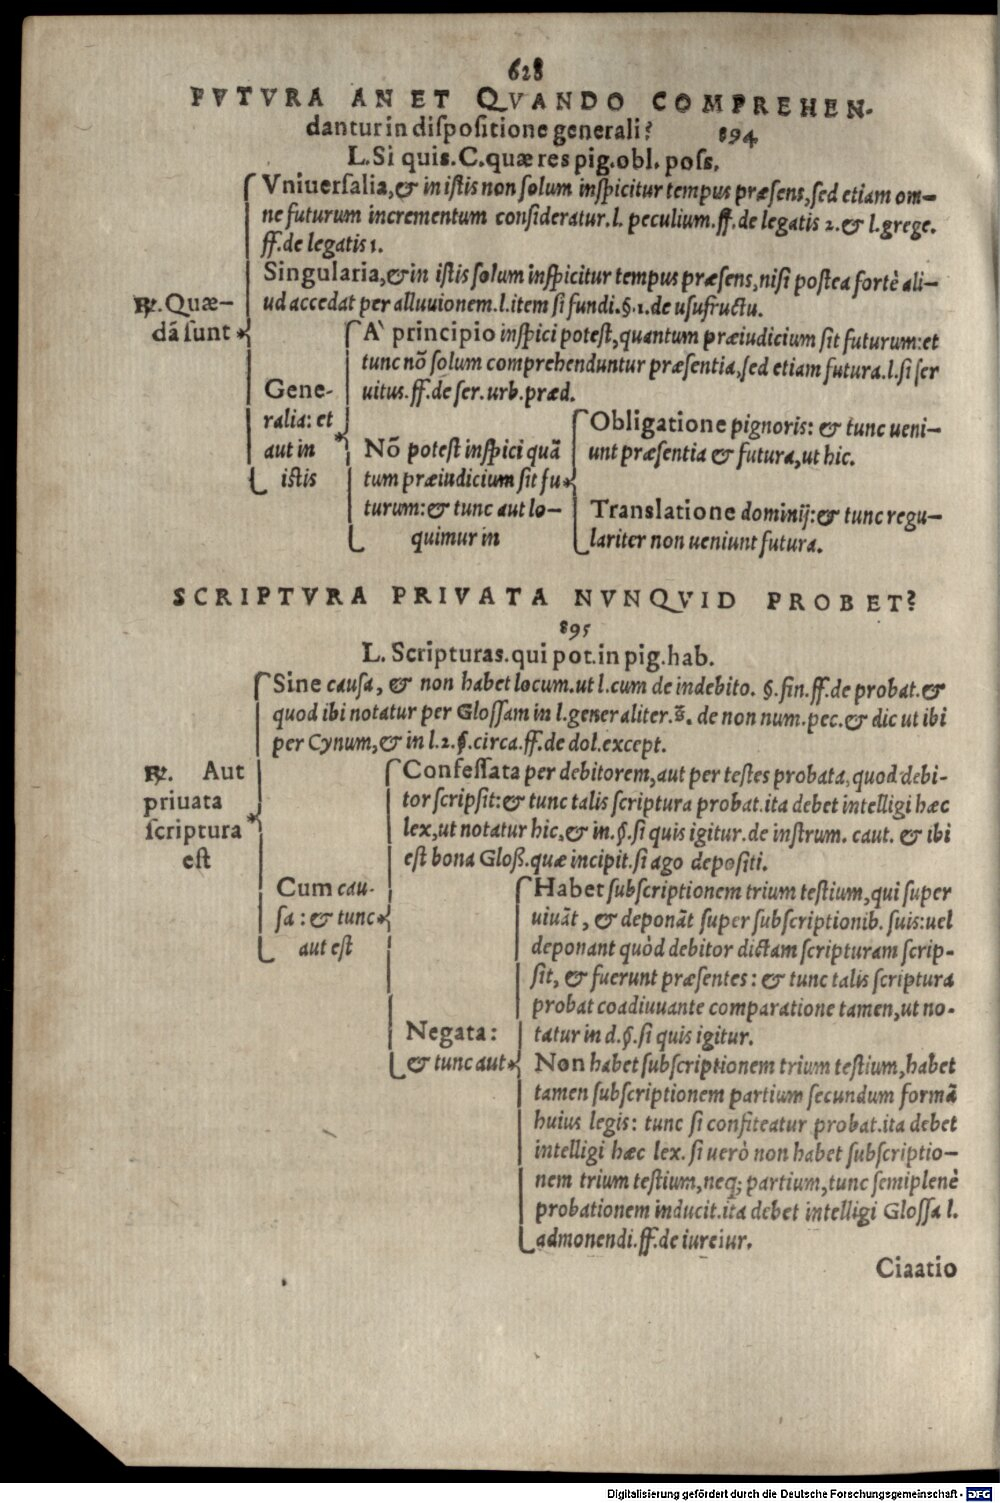 628
FVTVRA AN ET QVANDO COMPREHEN-
dantur in dispositione generali? 894
L. Si quis. C. quæ res pig. obl. poss.
Vniuersalia, & in istis non solum inspicitur tempus præsens, sed etiam om-
ne futurum incrementum consideratur. l. peculium. ff. de legatis 2. & l. grege.
ff. de legatis 1.
Singularia, & in istis solum inspicitur tempus præsens, nisi postea fortè ali-
ud accedat per alluuionem. l. item si fundi. §. 1. de usufructu.
℞. Quæ-
dã sunt
Gene-
ralia: et
aut in
istis
A` principio inspici potest, quantum præiudicium sit futurum: et
tunc nõ solum comprehenduntur præsentia, sed etiam futura. l. si ser
uitus. ff. de ser. urb. præd.
Nõ potest inspici quã
tum præiudicium sit fu-
turum: & tunc aut lo-
quimur in
Obligatione pignoris: & tunc ueni-
unt præsentia & futura, ut hic.
Translatione dominij: & tunc regu-
lariter non ueniunt futura.
SCRIPTVRA PRIVATA NVNQVID PROBET?
895
L. Scripturas. qui pot. in pig. hab.
Sine causa, & non habet locum. ut l. cum de indebito. §. fin. ff. de probat. &
quod ibi notatur per Glossam in l. generaliter. de non num. pec. & dic ut ibi
per Cynum, & in l. 2. §. circa. ff. de dol. except.
℞. Aut
priuata
scriptura
est
Cum cau-
sa: & tunc
aut est
Confessata per debitorem, aut per testes probata, quod debi-
tor scripsit: & tunc talis scriptura probat. ita debet intelligi hæc
lex, ut notatur hic, & in. §. si quis igitur. de instrum. caut. & ibi
est bona Gloß. quæ incipit. si ago depositi.
Negata:
& tunc aut
Habet subscriptionem trium testium, qui super
uiuãt, & deponãt super subscriptionib. suis: uel
deponant quòd debitor dictam scripturam scrip-
sit, & fuerunt præsentes: & tunc talis scriptura
probat coadiuuante comparatione tamen, ut no-
tatur in d. §. si quis igitur.
Non habet subscriptionem trium testium, habet
tamen subscriptionem partium secundum formã
huius legis: tunc si confiteatur probat. ita debet
intelligi hæc lex. si uerò non habet subscriptio-
nem trium testium, neq; partium, tunc semiplenè
probationem inducit. ita debet intelligi Glossa l.
admonendi. ff. de iureiur.
Ciaatio
Digitalisierung gefördert durch die Deutsche Forschungsgemeinschaft - DFG